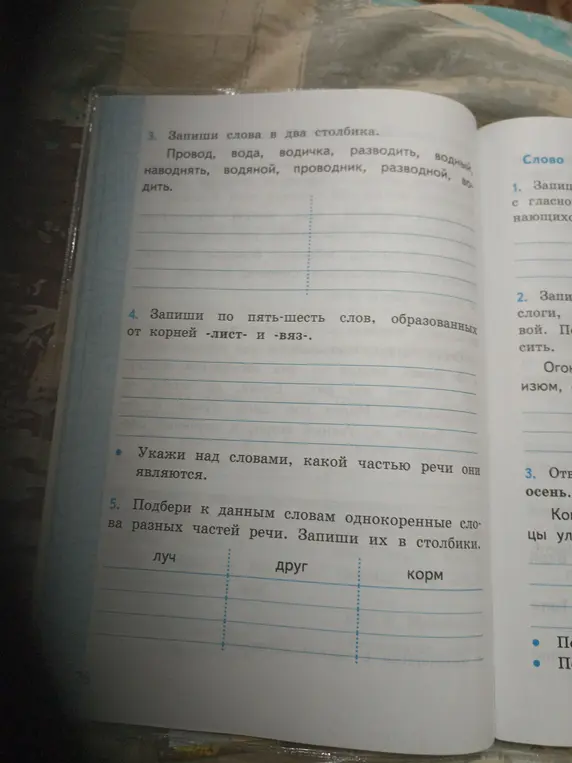 3. Запиши слова в два столбика.
Провод, вода, водичка, разводить, водный,
наводнять, водяной, проводник, разводной, во-
дить.
4. Запиши по пять-шесть слов, образованных
от корней -лист- и -вяз-.
• Укажи над словами, какой частью речи они
являются.
5. Подбери к данным словам однокоренные сло-
ва разных частей речи. Запиши их в столбики.
луч друг корм
Слово
1.
с
2.
слоги,
вой.
сить.
изюм,
3.
осень.
цы
•
•